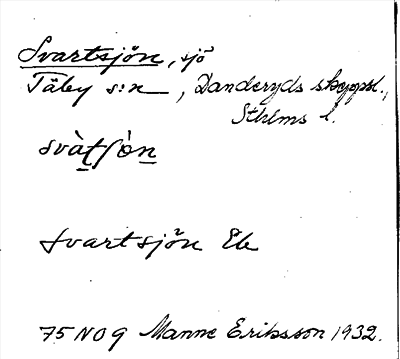 Svartsjön, sjö
Täby s:n, Danderyds skeppsl.,
Sthlms l.
svàt̲ʃòn̲
Svartsjön Ek
75 NO 9 Manne Eriksson 1932.